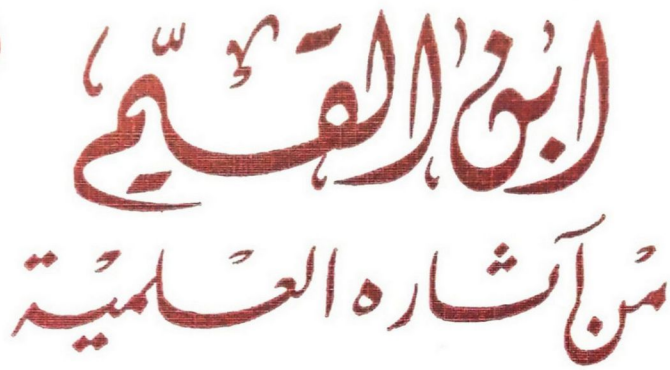 ابن القيّم
من آثاره العلمية